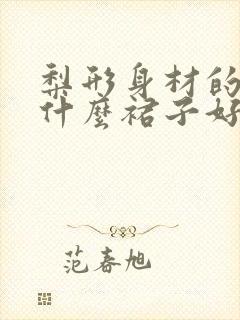 梨形身材的
什麼裙子好
范春旭